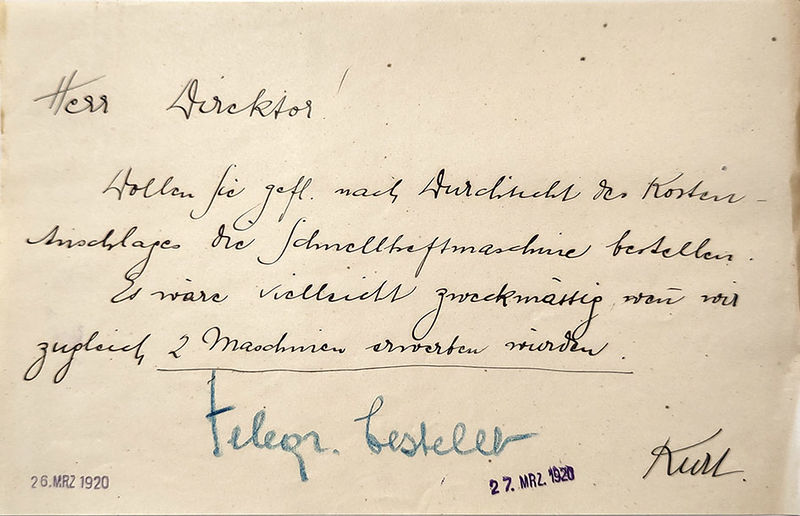 Herr Direktor!
Wollen Sie gefl. nach Durchsicht des Kosten-
Anschlages die Schnellheftmaschine bestellen.
Es wäre vielleicht zweckmässig wen̄ wir
zugleich 2 Maschinen erwerben würden.
telegr. bestellt
Kurt.
26.MRZ 1920
27. MRZ. 1920